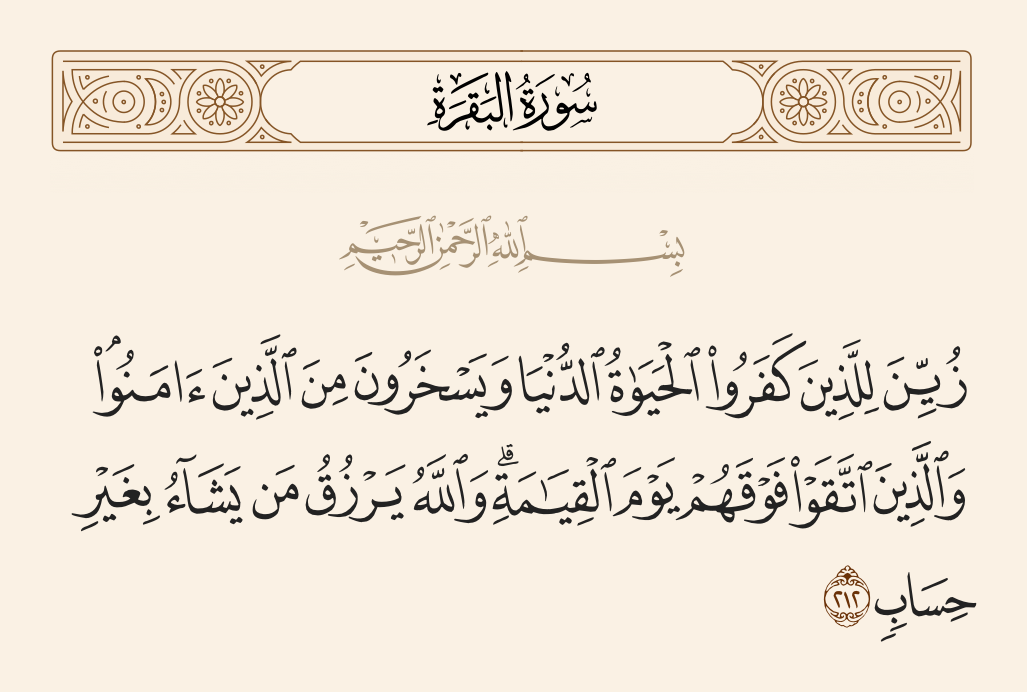 سُورَةُ البَقَرَةِ
بِسْمِ ٱللَّهِ ٱلرَّحْمَٰنِ ٱلرَّحِيمِ
زُيِّنَ لِلَّذِينَ كَفَرُوا۟ ٱلْحَيَوٰةُ ٱلدُّنْيَا وَيَسْخَرُونَ مِنَ ٱلَّذِينَ ءَامَنُوا۟ ۘ
وَٱلَّذِينَ ٱتَّقَوْا۟ فَوْقَهُمْ يَوْمَ ٱلْقِيَـٰمَةِ ۗ وَٱللَّهُ يَرْزُقُ مَن يَشَآءُ بِغَيْرِ
حِسَابٍ ٢١٢